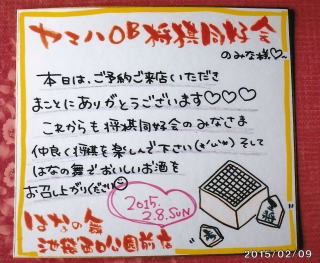 ヤマハOB将棋同好会
のみな様♡~
本日は、ご予約ご来店いただき
まことにありがとうございます♡♡♡
これからも将棋同好会のみなさま
仲良く将棋を楽しんで下さい(*'ω'*) そして
はなの舞でおいしいお酒を
お召し上がりください☺
2015.
2.8.SUN
はなの舞
池袋西口公園前店
2015/02/09